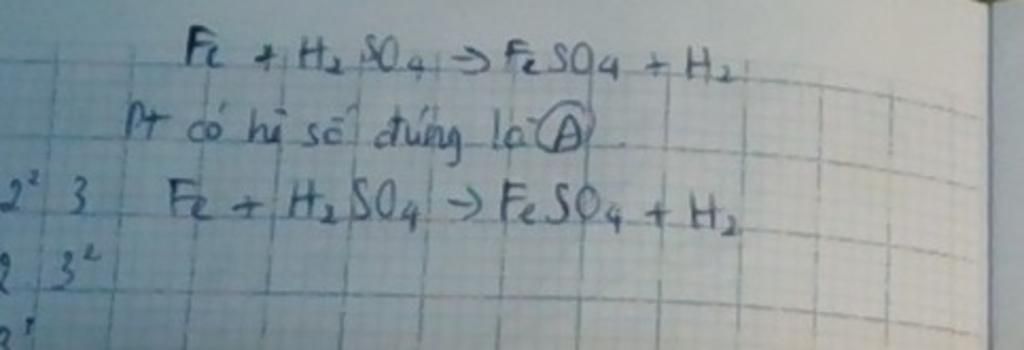 Fe + H₂SO₄ → FeSO₄ + H₂
Pt có hệ số đúng là A
2² 3 Fe + H₂SO₄ → FeSO₄ + H₂
2 3²